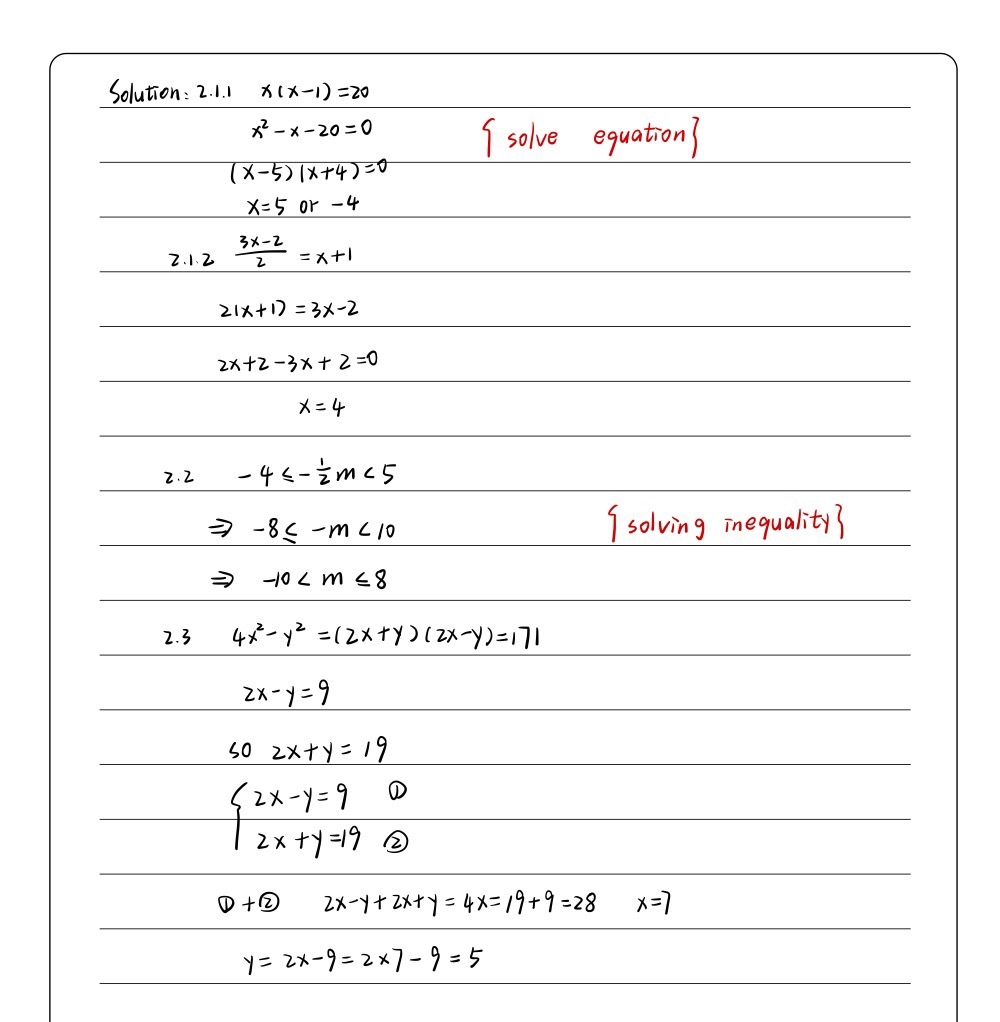 Solution: 2.1.1 x(x-1)=20
x²-x-20=0 {solve equation}
(x-5)(x+4)=0
x=5 or -4
2.1.2 (3x-2)/2 = x+1
2(x+1)=3x-2
2x+2-3x+2=0
x=4
2.2 -4≤-½m<5
⇒ -8≤-m<10 {solving inequality}
⇒ -10<m≤8
2.3 4x²-y²=(2x+y)(2x-y)=171
2x-y=9
so 2x+y=19
{2x-y=9 ①
2x+y=19 ②
①+② 2x-y+2x+y=4x=19+9=28 x=7
y=2x-9=2×7-9=5